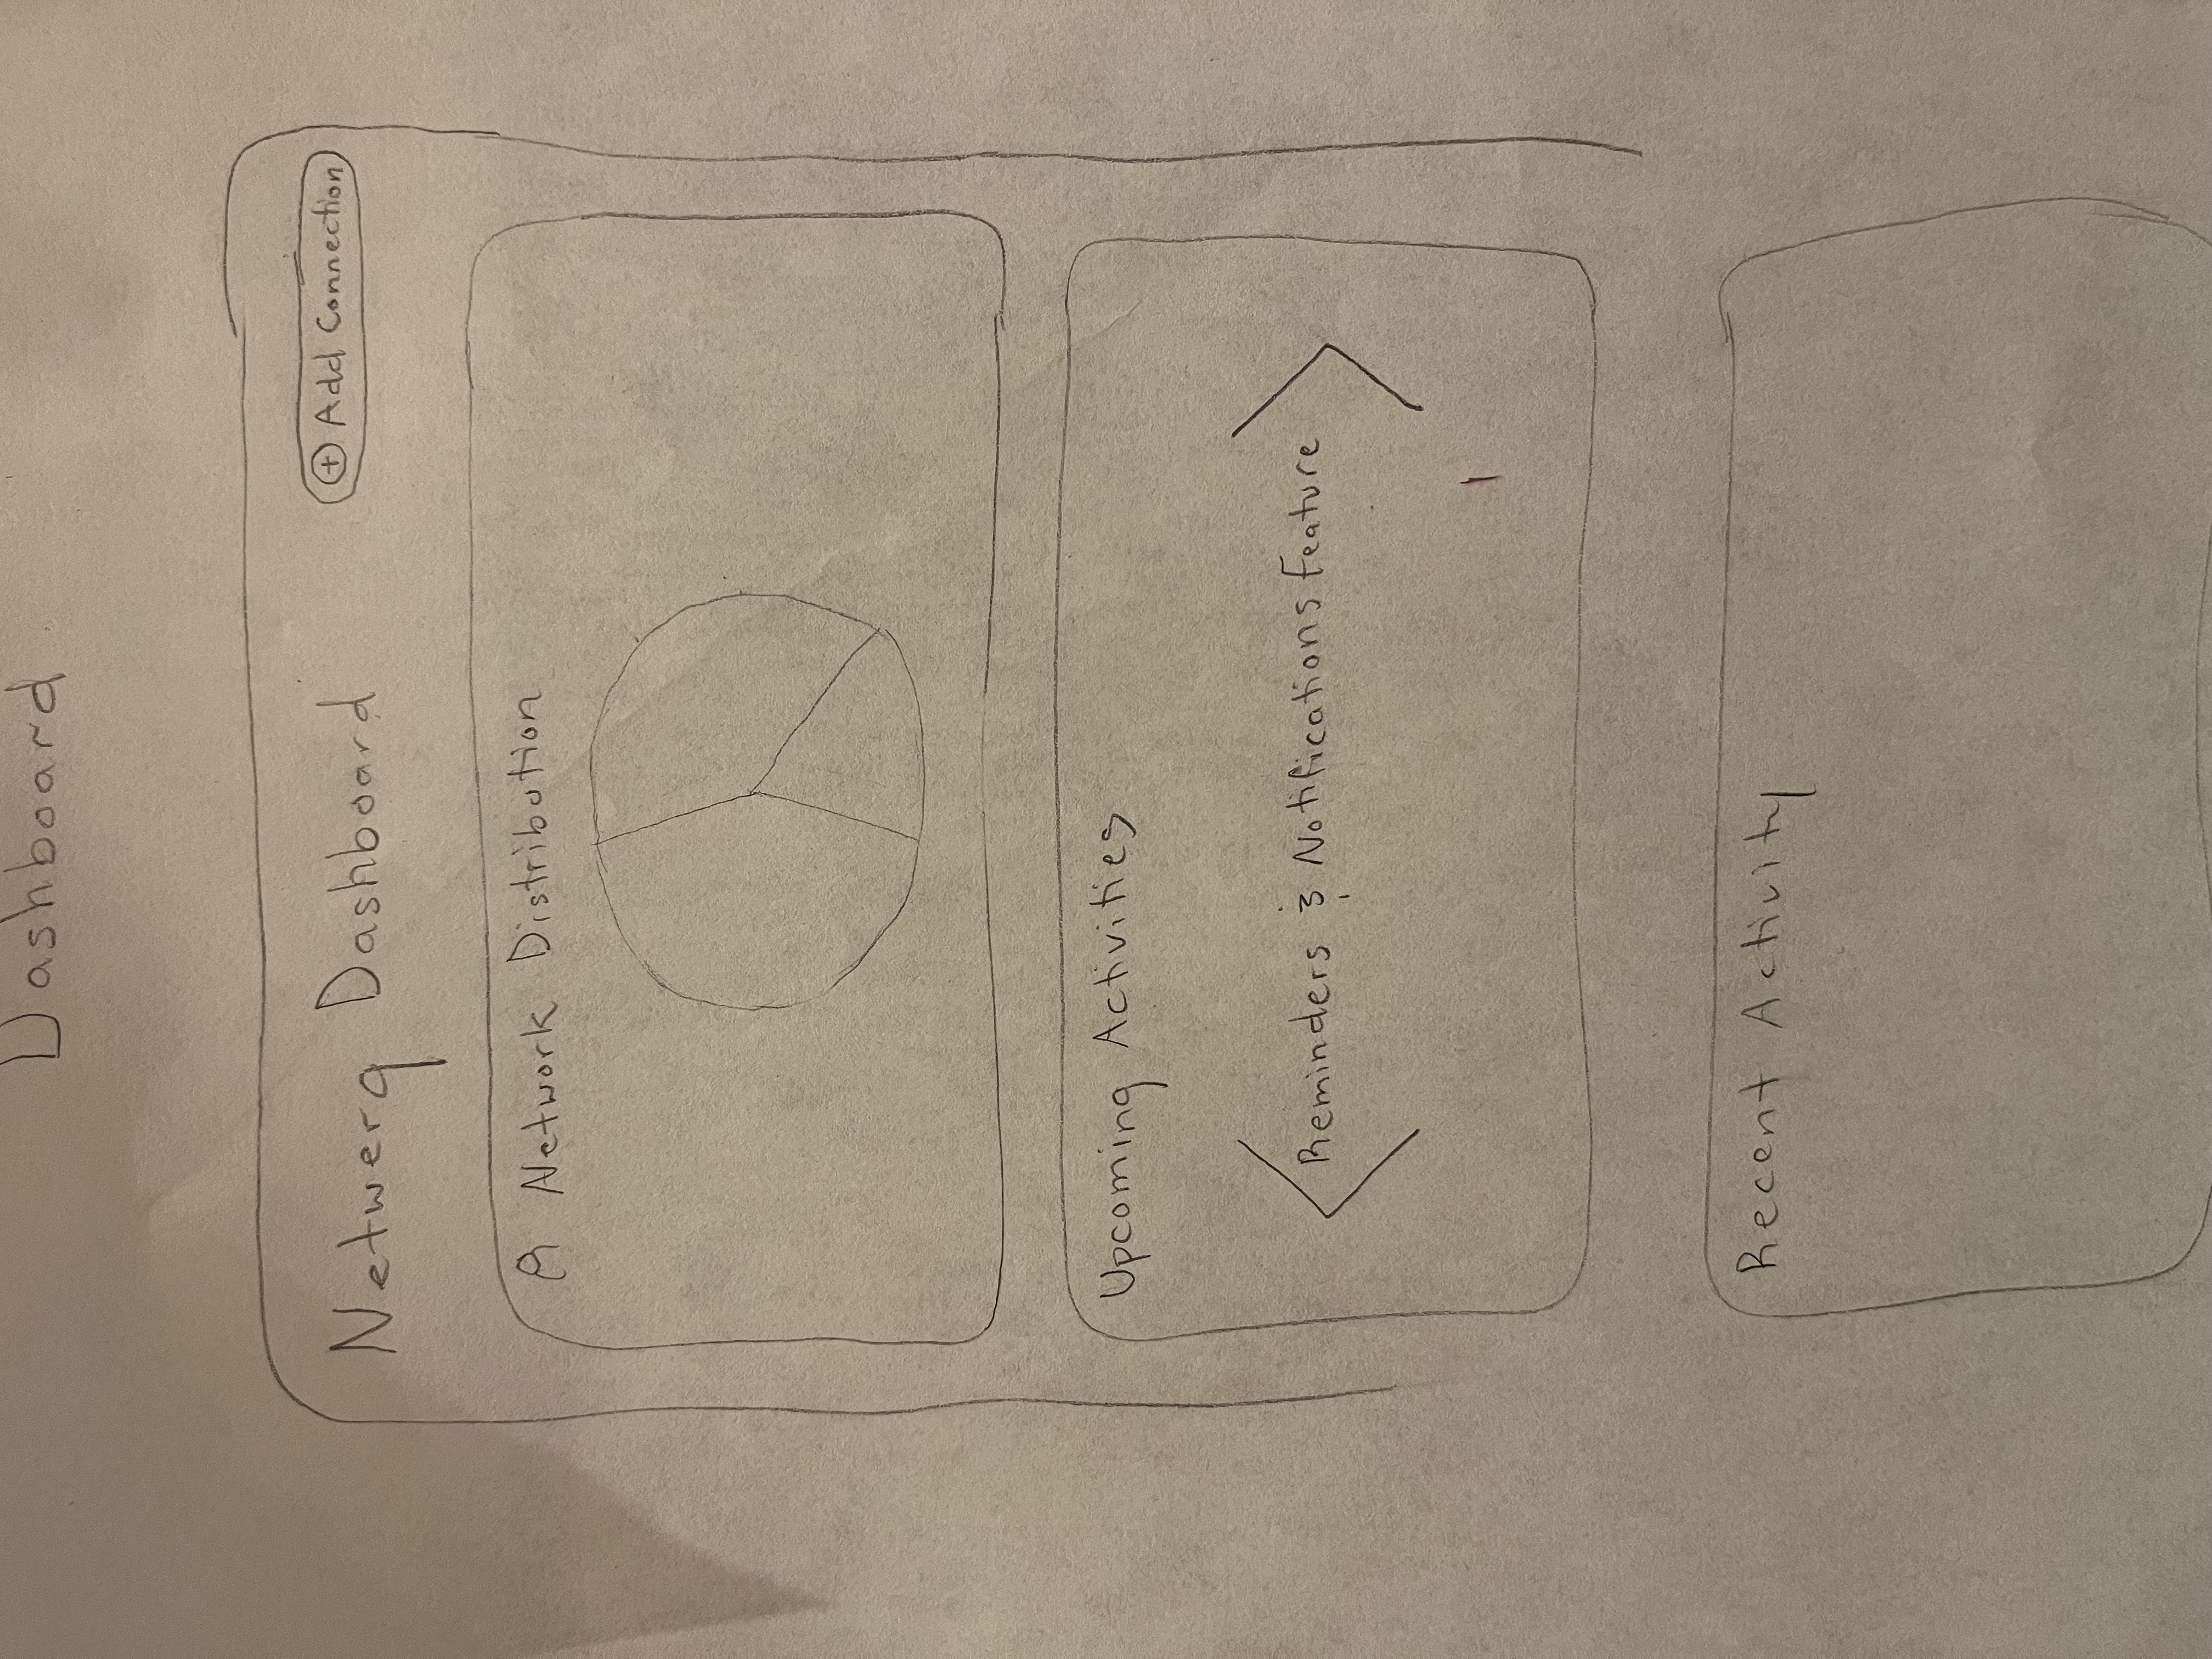 Dashboard
Netwerq Dashboard
+ Add Connection
Network Distribution
Upcoming Activities
Reminders & Notifications Feature
Recent Activity